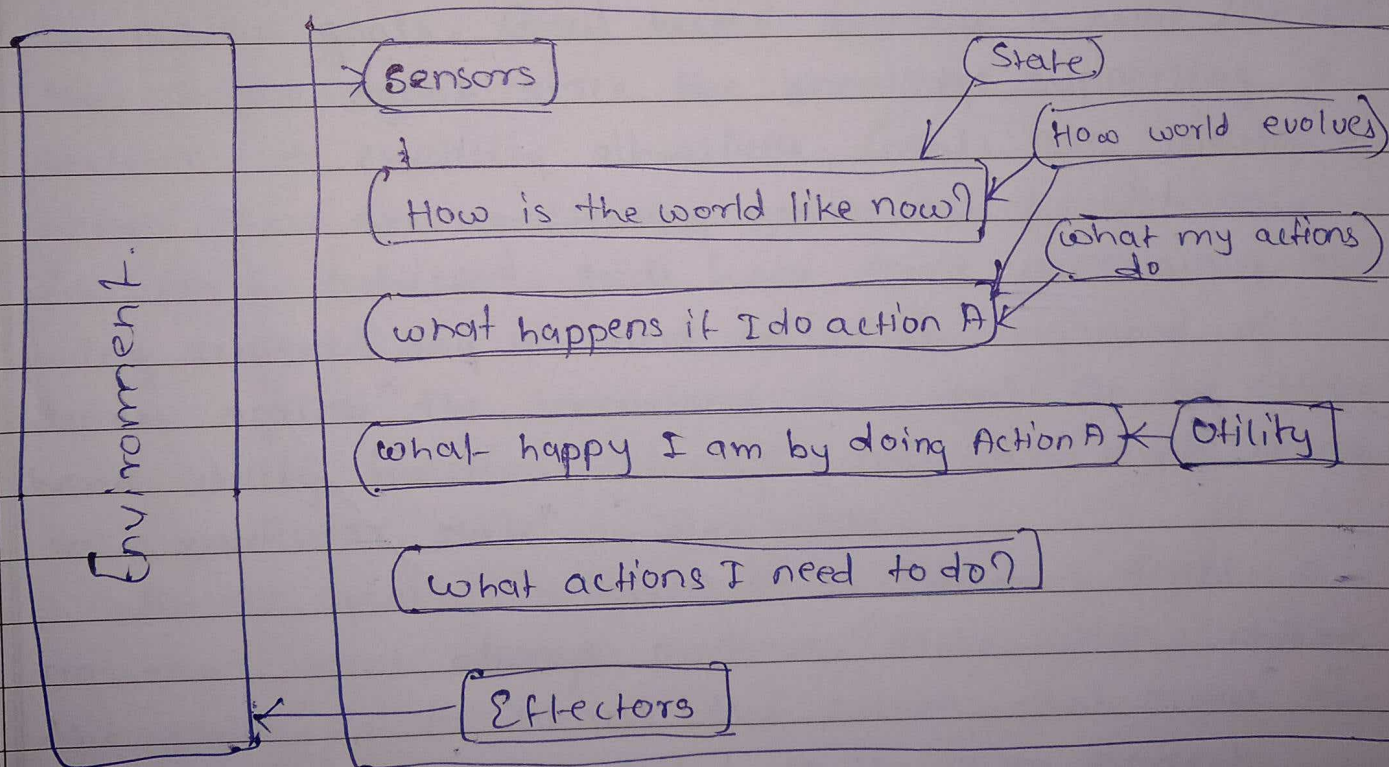 Sensors
State
How world evolves
How is the world like now?
what my actions
do
what happens if I do action A
what happy I am by doing Action A
Utility
what actions I need to do?
Effectors
Environment.